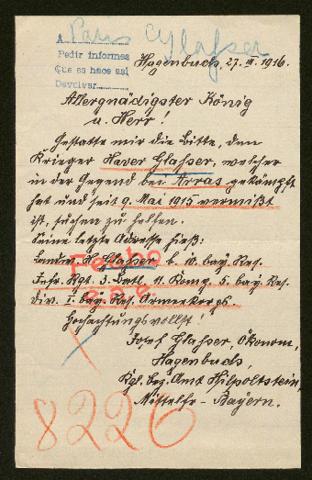 A Paris Glasser
Pedir informes
Que es hace asi
Devolver
Hagenbuch, 27. III. 1916.
Allergnädigster König
u. Herr!
Gestatte mir die Bitte, den
Krieger Xaver Glasser, welcher
in der Gegend bei Arras gekämpft
hat und seit 9. Mai 1915 vermißt
ist, suchen zu helfen.
Seine letzte Adresse hieß:
Landw. X. Glasser k. 10. bay. Res.
Infr. Rgt. 3. Batl. 11. Komp. 5. bay. Res.
Div. I. bay. Res. Armeekorps.
Fecho
Hochachtungsvollst!
Josef Glasser, Ökonom,
Hagenbuch,
Kgl. bez. Amt Hilpoltstein,
Mittelfr. - Bayern.
8226